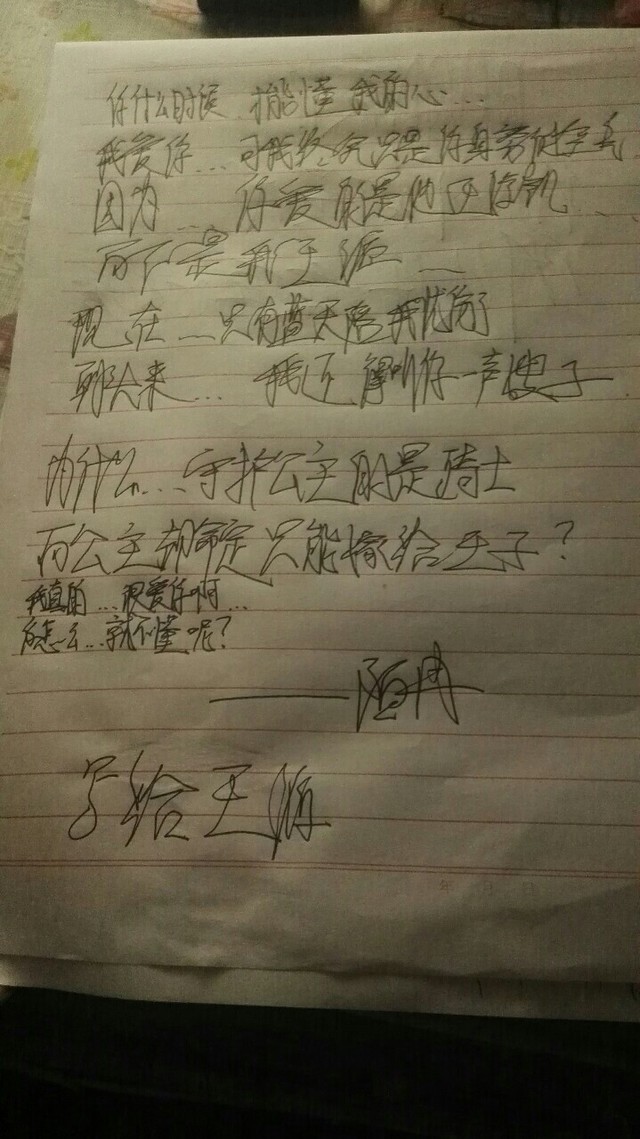 你什么时候 才能懂 我的心...
我爱你... 可我终究只是你身旁的
因为... 你爱的是他王俊凯...
而不是我王源...
现在...只有蓝天陪我忧伤了
那么来... 我还得叫你一声嫂子
为什么...守护公主的是骑士
而公主却命定只能嫁给王子？
我真的...很爱你啊...
你怎么...就不懂呢？
——陌冉
写给王源
年 月 日